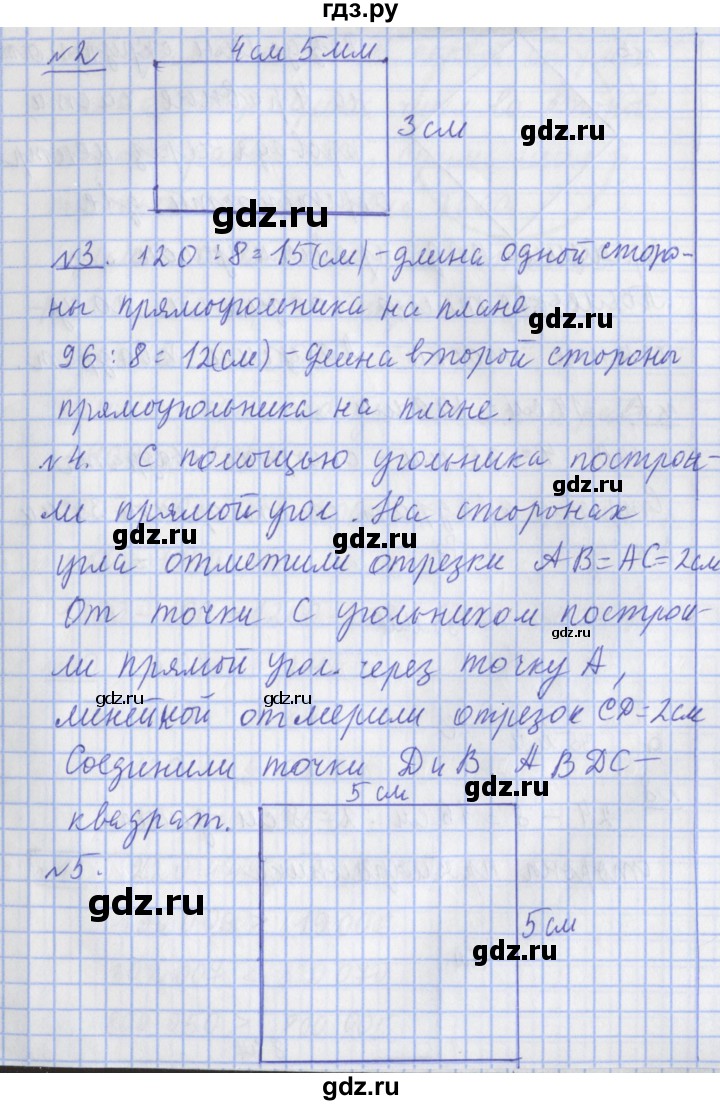 гдз.ру
№2
4см 5мм
3 см
gdz.ru
gdz.ru
№3. 120:8=15(см)-длина одной сторо-
ны прямоугольника на плане
gdz.ru
96:8=12(см)-длина второй стороны
прямоугольника на плане.
№4. С помощью угольника построи-
gdz.ru
ли прямой угол. На сторонах
gdz.ru
gdz.ru
угла отметили отрезки AB=AC=2см
От точки С угольником построи-
gdz.ru
ли прямой угол. через точку А,
gdz.ru
gdz.ru
линейкой отмерили отрезок CD=2см
Соединили точки D и B ABDC-
gdz.ru
5 см
квадрат.
№5.
gdz.ru
5 см
gdz.ru
gdz.ru